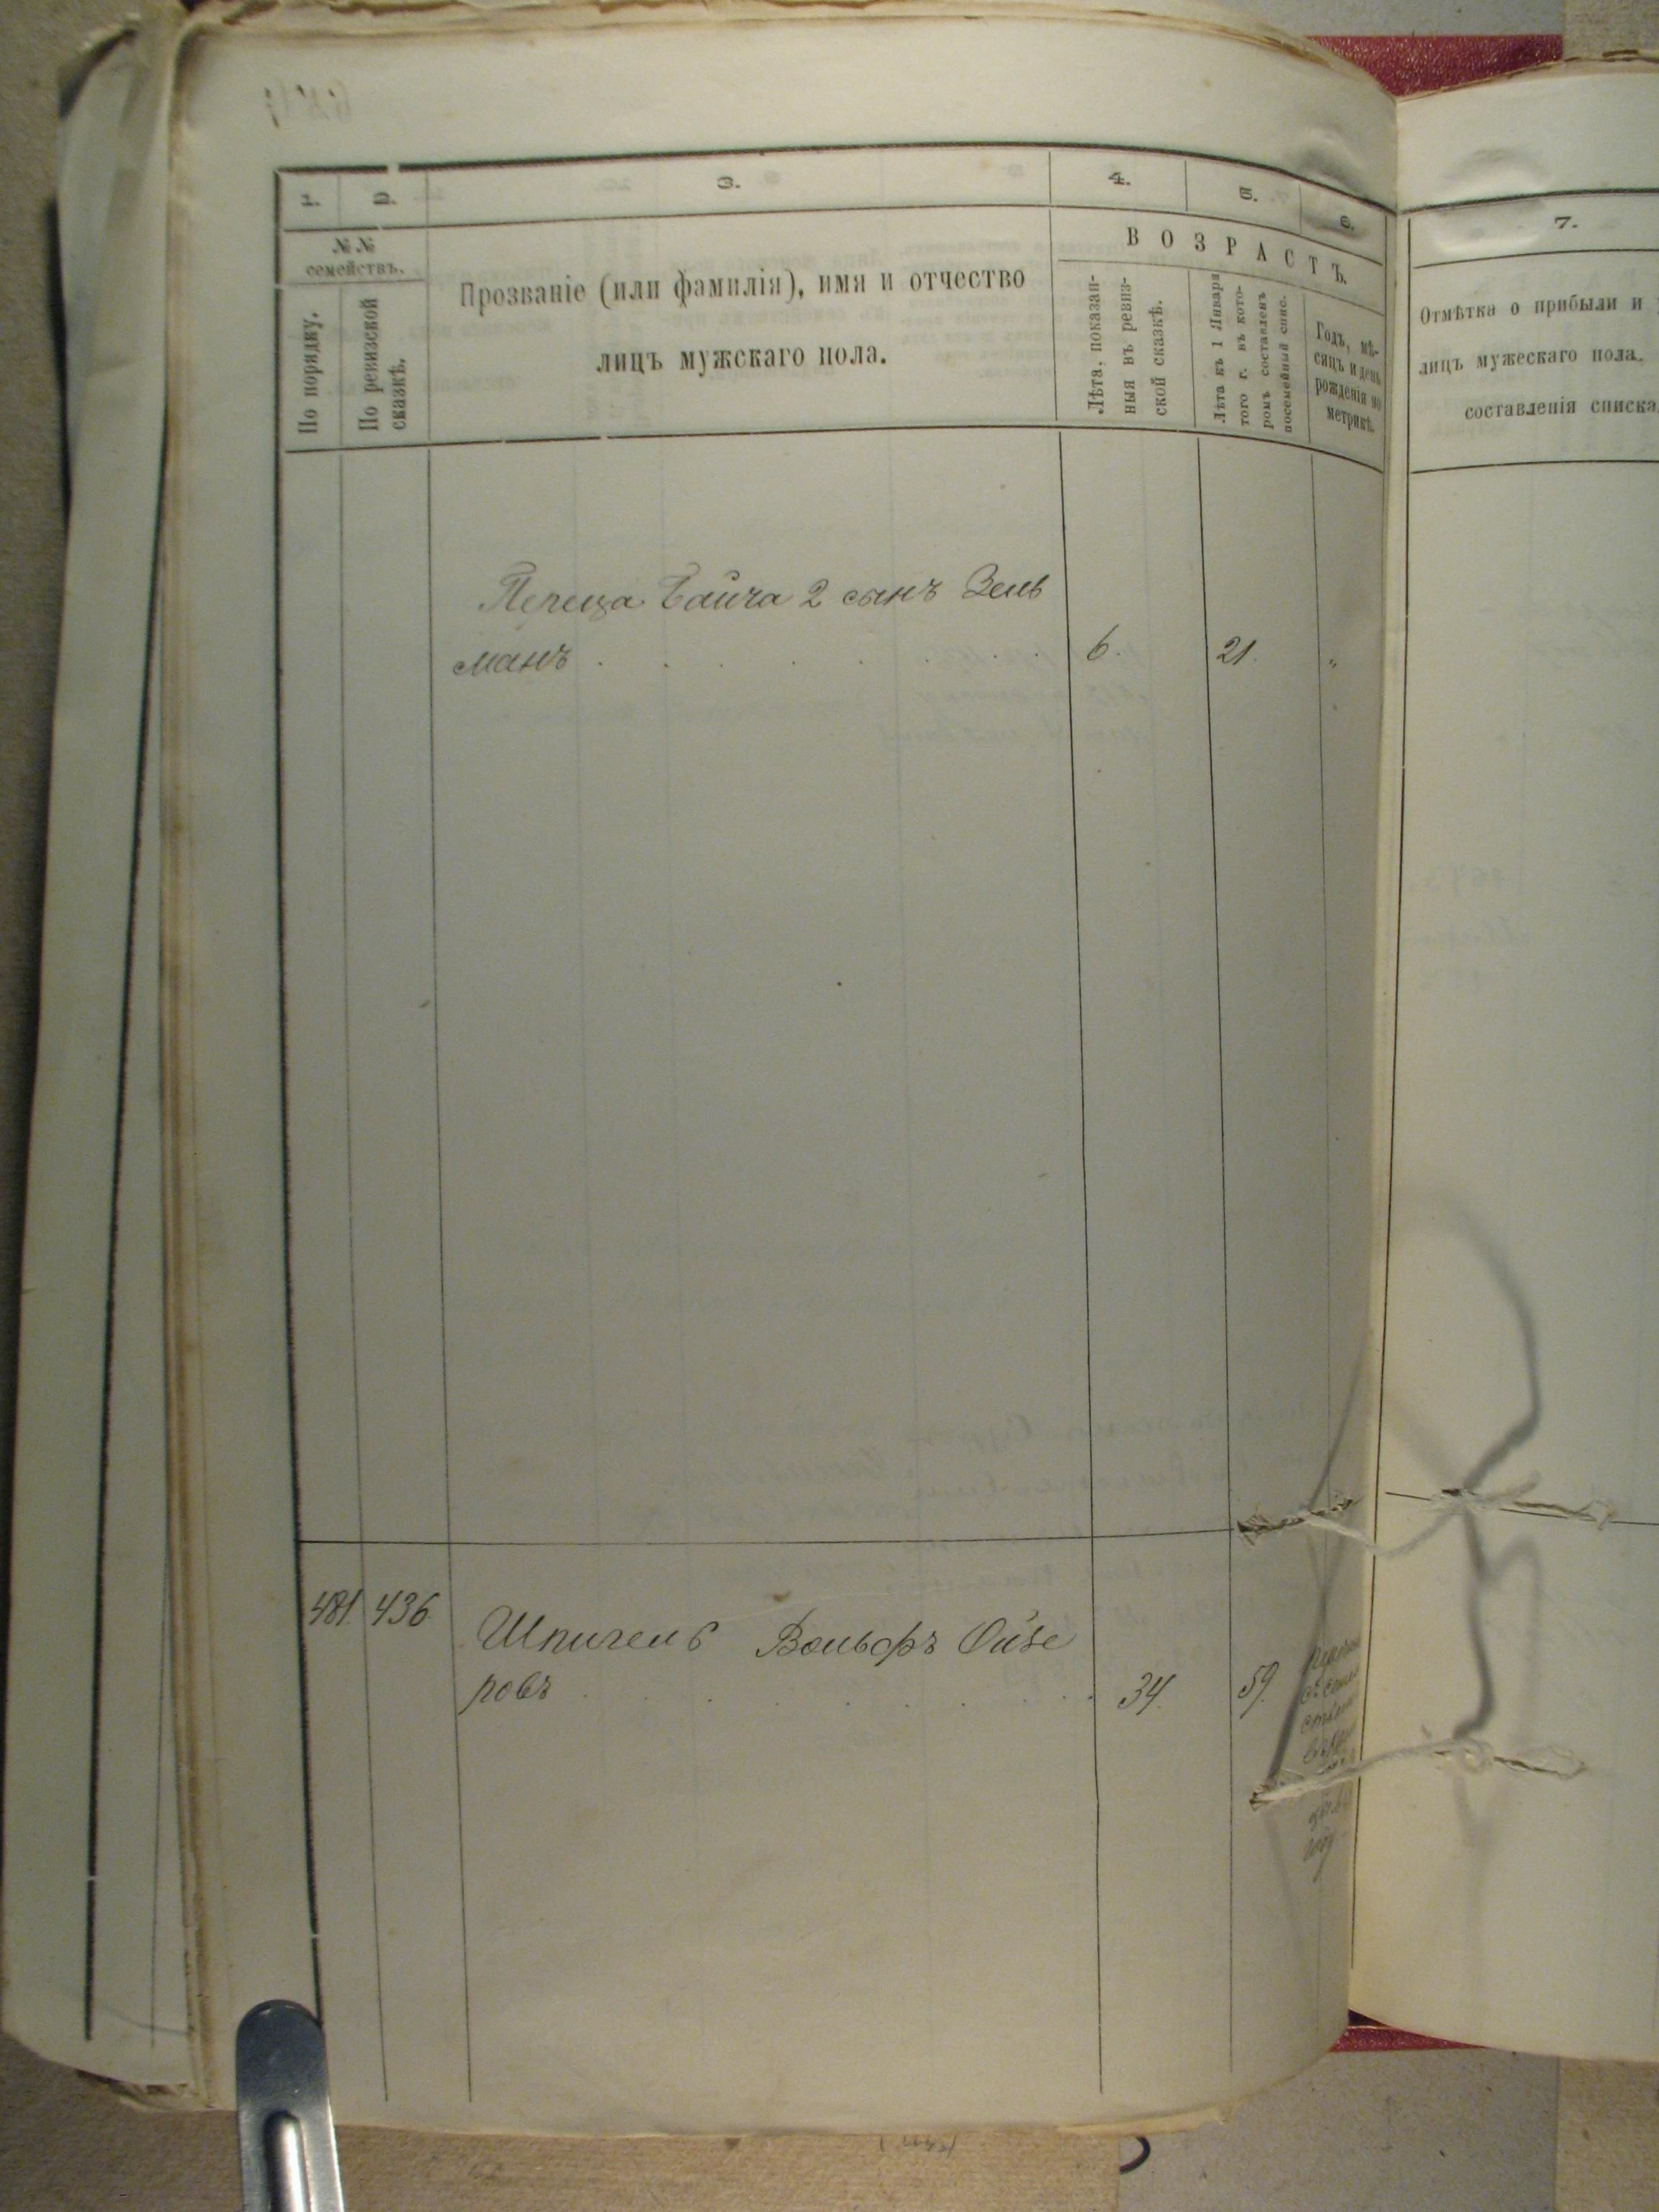 1.
2.
3.
4.
5.
6.
7.
№ №
семействъ.
По порядку.
По ревизской
сказкѣ.
Прозваніе (или фамилія), имя и отчество
лицъ мужскаго пола.
ВОЗРАСТЪ.
Лѣта, показан-
ныя въ ревиз-
ской сказкѣ.
Лѣта къ 1 Января
того г. въ кото-
ромъ составленъ
посемейный спис.
Годъ, мѣ-
сяцъ и день
рожденія по
метрикѣ.
Отмѣтка о прибыли и
лицъ мужескаго пола,
составленія списка
2 сынъ Зель
манъ . . . . . . . . 6. 21. "
481 436 Шпигель Вольфъ Ойзе
ровъ . . . . . . . . 34. 59.